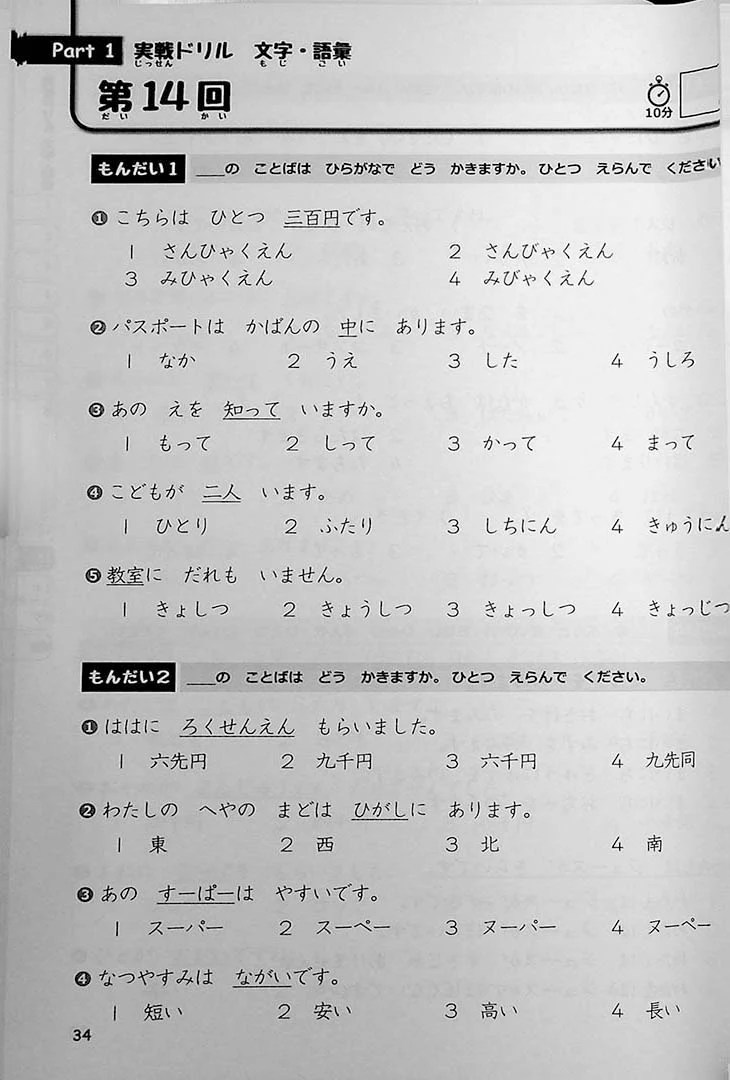 Part 1 実戦ドリル 文字・語彙
じっせん もじ ごい
第14回
だい かい
10分
もんだい1 ___の ことばは ひらがなで どう かきますか。ひとつ えらんで ください
❶ こちらは ひとつ 三百円です。
1 さんひゃくえん 2 さんびゃくえん
3 みひゃくえん 4 みびゃくえん
❷ パスポートは かばんの 中に あります。
1 なか 2 うえ 3 した 4 うしろ
❸ あの えを 知って いますか。
1 もって 2 しって 3 かって 4 まって
❹ こどもが 二人 います。
1 ひとり 2 ふたり 3 しちにん 4 きゅうにん
❺ 教室に だれも いません。
1 きょしつ 2 きょうしつ 3 きょっしつ 4 きょっじつ
もんだい2 ___の ことばは どう かきますか。ひとつ えらんで ください。
❶ ははに ろくせんえん もらいました。
1 六先円 2 九千円 3 六千円 4 九先同
❷ わたしの へやの まどは ひがしに あります。
1 東 2 西 3 北 4 南
❸ あの すーぱーは やすいです。
1 スーパー 2 スーペー 3 ヌーパー 4 ヌーペー
❹ なつやすみは ながいです。
1 短い 2 安い 3 高い 4 長い
34